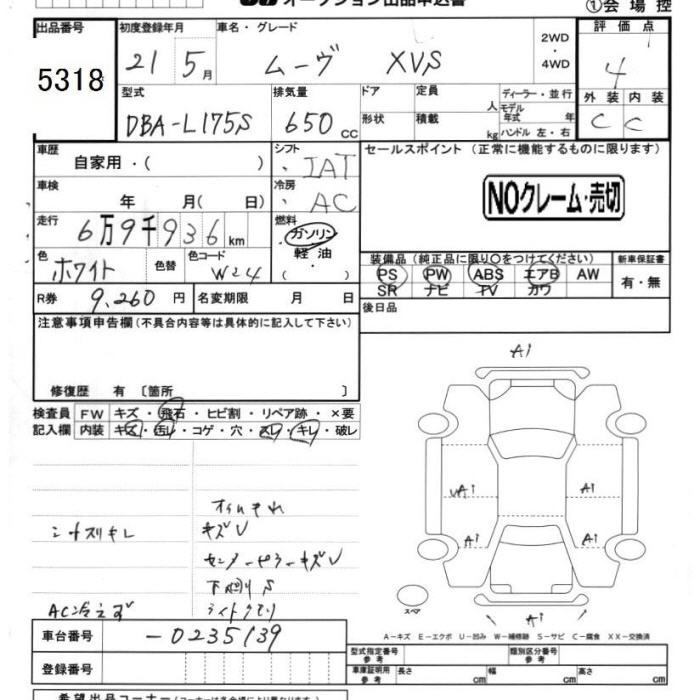 オークション出品申込書
①会場控
出品番号 初度登録年月 車名・グレード 評価点
5318 21 5月 ムーヴ XVS 2WD・4WD 4
型式 排気量 ドア 定員 ディーラー・並行 外装 内装
DBA-L175S 650cc 形状 積載 人 kg モデル年式 年 ハンドル 左・右 C C
車歴 シフト セールスポイント (正常に機能するものに限ります)
自家用・( ) IAT
車検 冷房 NOクレーム・売切
年 月( 日) AC
走行 燃料
6万9千936km ガソリン
色 色替 色コード 軽油 装備品 (純正品に限り○をつけてください) 新車保証書
ホワイト W24 ・( ) PS PW ABS エアB AW 有・無
SR ナビ TV カワ
R券 9,260円 名変期限 月 日 後日品
注意事項申告欄 (不具合内容等は具体的に記入して下さい)
修復歴 有 〔箇所 〕
検査員 FW キズ・飛石・ヒビ割・リペア跡・×要
記入欄 内装 キズ・汚レ・コゲ・穴・スレ・キレ・破レ
A1
UA1 A1
A1 A1
キズV
センターピラーキズV
下廻りS
AC冷えず ライトクモリ
スペア
A1
A-キズ E-エクボ U-凹み W-補修跡 S-サビ C-腐食 XX-交換済
車台番号 -0235139
型式指定番号 参考 類別区分番号 参考
登録番号 車庫証明用 参考 長さ cm 幅 cm 高さ cm
希望出品コーナー